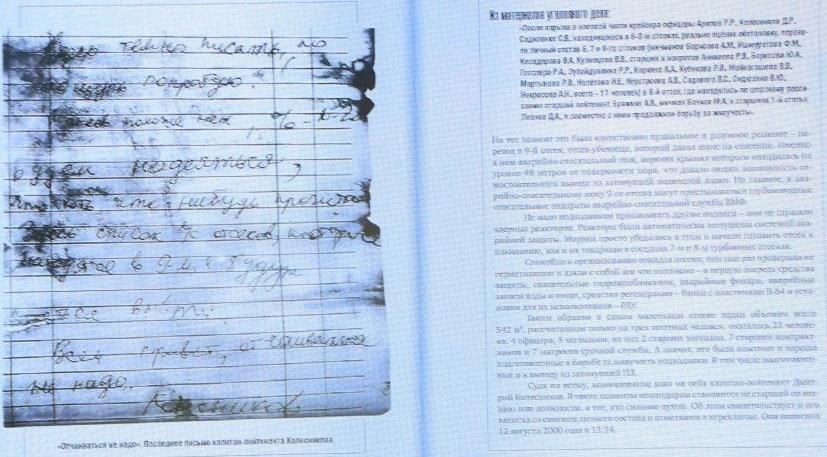 темно писать, но
попробую.
похоже нет
%
надеяться,
что нибудь прочитает
список отсеков, которые
в 9-м и будут
Всем привет, отчаиваться
не надо.
Колесников
«Отчаиваться не надо». Последнее письмо капитан-лейтенанта Колесникова
Из материалов уголовного дела:
«После взрыва в носовой части крейсера офицеры Аряпов Р.Р., Колесников Д.Р.,
Садиленко С.В., находившиеся в отсеках, реально оценив обстановку, переве-
ли личный состав 6, 7 и 8-го отсеков (мичманов Борисова А.М., Ишмуратова Ф.М.,
Козадерова В.А., Кузнецова В.В., старшин и матросов Аникеева Р.В., Борисова Ю.А.,
Гесслера Р.А., Зубайдуллина Р.Р., Коркина А.А., Кубикова Р.В., Майнагашева В.В.,
Мартынова Р.В., Налетова И.Е., Неустроева А.В., Садового В.С., Сидюхина В.Ю.,
Некрасова А.Н., всего – 17 человек) в 9-й отсек, где находились по штатному распи-
санию старший лейтенант Бражкин А.В., мичман Бочков М.А. и старшина 1-й статьи
Леонов Д.А., и совместно с ними продолжили борьбу за живучесть».
На тот момент это было единственно правильное и разумное решение – пе-
реход в 9-й отсек, отсек-убежище, который давал шанс на спасение. Именно
в нем аварийно-спасательный люк, верхняя крышка которого находилась на
уровне 98 метров от поверхности моря, что давало людям возможность са-
мостоятельного выхода из затонувшей подводной лодки. Но главное, к ава-
рийно-спасательному люку 9-го отсека могут пристыковаться глубоководные
спасательные аппараты аварийно-спасательной службы ВМФ.
Не надо подводникам приписывать другие подвиги – они не глушили
ядерных реакторов. Реакторы были автоматически заглушены системой ава-
рийной защиты. Моряки просто убедились в этом и начали готовить отсек к
покиданию, как и их товарищи в соседних 7-м и 8-м турбинных отсеках.
Спокойно и организованно покидая отсеки, они еще раз проверили их
герметизацию и взяли с собой все что положено – в первую очередь средства
защиты, спасательные гидрокомбинезоны, аварийные фонари, аварийные
запасы воды и пищи, средства регенерации – банки с пластинами В-64 и уста-
новки для их использования – РДУ.
Таким образом в самом маленьком отсеке лодки объемом всего
542 м³, рассчитанном только на трех штатных человек, оказалось 23 челове-
ка: 4 офицера, 5 мичманов, из них 2 старших мичмана, 7 старшин контракт-
ников и 7 матросов срочной службы. А значит, это были опытные и хорошо
подготовленные к борьбе за живучесть подводники. В том числе подготовлен-
ные к выходу из затонувшей ПЛ.
Судя по всему, командование взял на себя капитан-лейтенант Дмит-
рий Колесников. В такие моменты командиром становится не старший по зва-
нию или должности, а тот, кто сильнее духом. Об этом свидетельствует и его
записка со списком личного состава и отметками о перекличке. Она написана
12 августа 2000 года в 13.34.